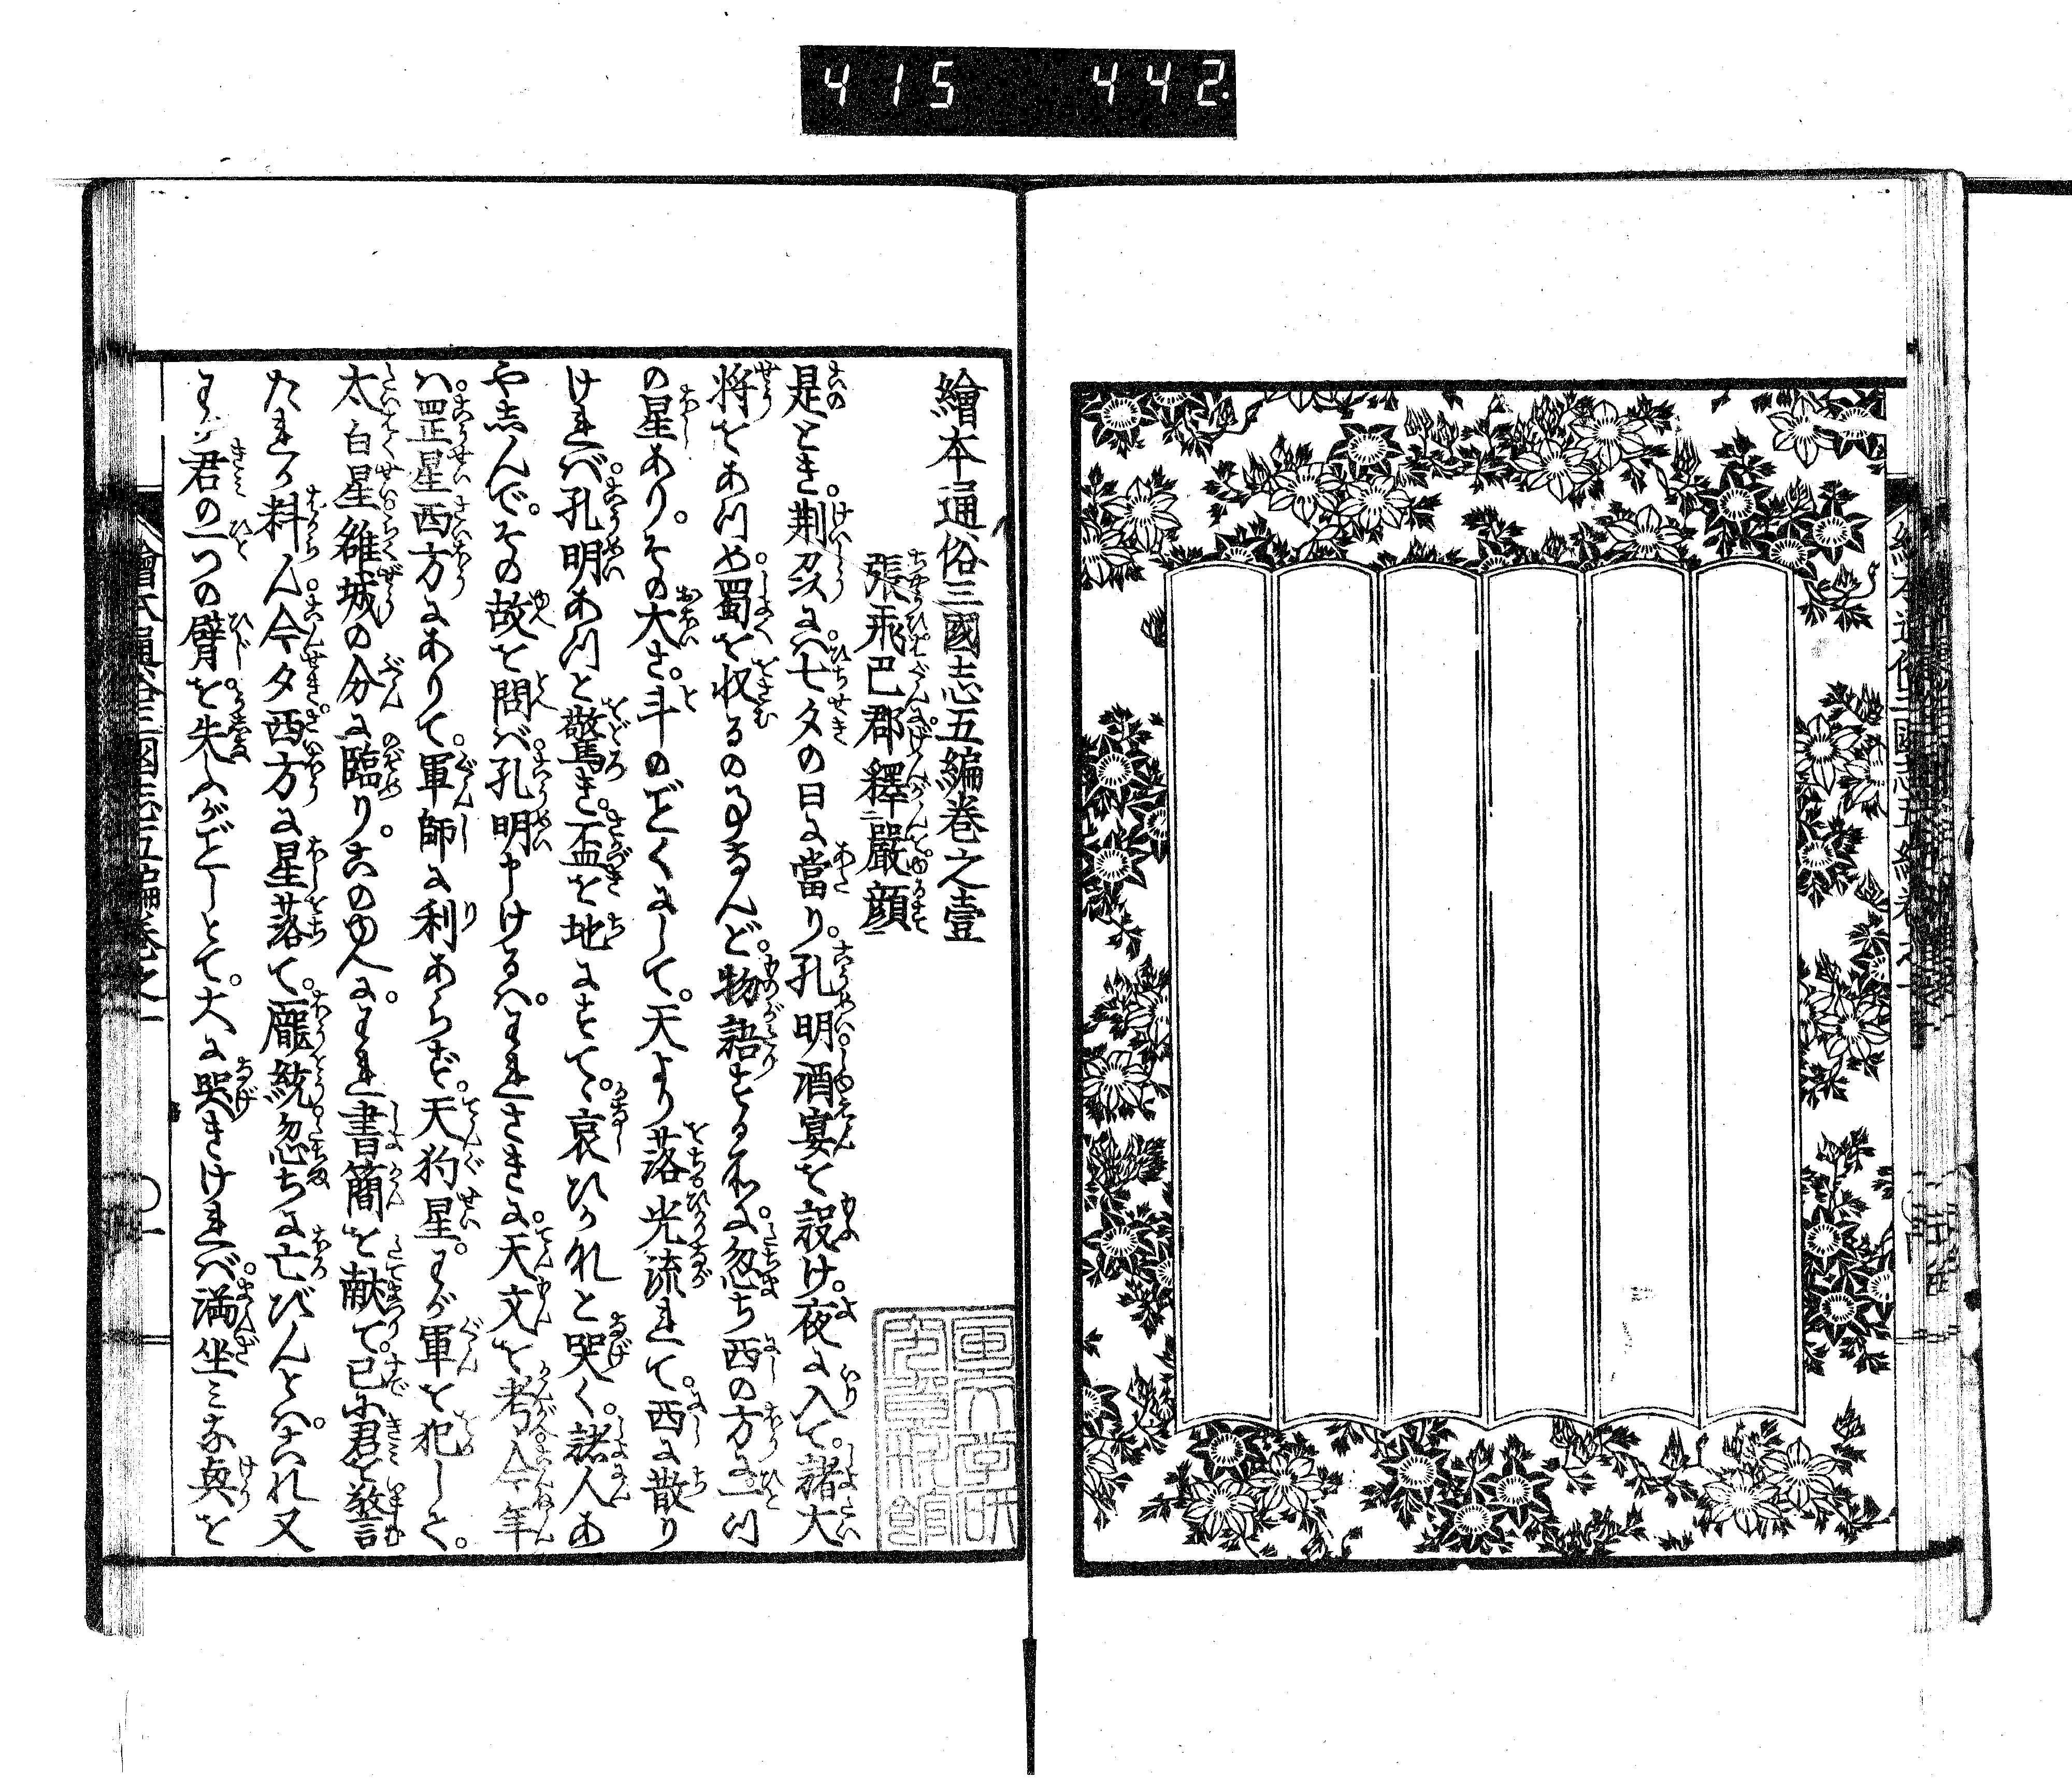 415 442
繪本通俗三國志五編巻之壹
張飛巴郡釋嚴顔
是とき。荆刕には。七夕の日に當り。孔明酒宴を設け。夜に入て。諸大
将をあつめ。蜀を収るの事なんど。物語する所に。忽ち西の方に一つ
の星あり。その大さ。斗のごとくにして。天より落光流れて。西に散り
ければ。孔明あつと驚き。盃を地にすて。哀ひかれと哭く。諸人あ
やしんで。その故を問ば。孔明申けるは。われさきに。天文を考。今年
ハ。罡星西方にありて。軍師に利あらず。天狗星。わが軍を犯しと。
太白星雒城の分に臨り。このゆへに。われ書簡を献て。已に君を警
たれか料ん今夕西方に星落て。龐統忽ちに亡びんとは。これ又
わが君の一つの臂を失ふがごとしとて。大に哭きければ。満坐ミな興を